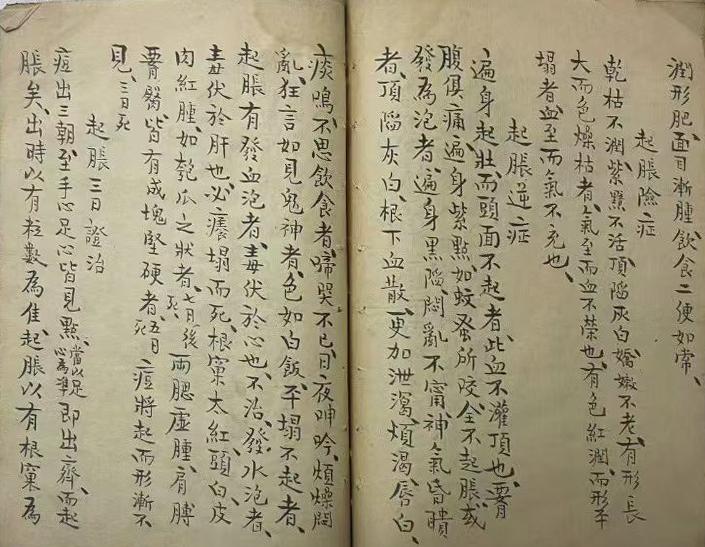 潤形肥、面目漸腫、飲食二便如常、
起脹險症
乾枯不潤、紫黑不活、頂陷灰白、嬌嫩不老、有形長
大而色燥枯者、氣至而血不榮也、有色紅潤、而形平
塌者、血至而氣不充也、
起脹逆症
遍身起壯、而頭面不起者、此血不灌頂也、腰
腹俱痛、遍身紫點如蚊蚤所咬、全不起脹、或
發為泡者、遍身黑陷、悶亂不甯、神氣昏聵
者、頂陷灰白、根下血散、更加泄瀉煩渴、唇白、
痰鳴、不思飲食者、啼哭不已、日夜呻吟、煩燥悶
亂、狂言如見鬼神者、色如白飯、平塌不起者、
起脹有發血泡者、毒伏於心也、不治、發水泡者、
毒伏於肝也、必癢塌而死、根窠太紅、頭白皮
肉紅腫、如匏瓜之狀者、七日後死、兩腮虛腫、肩膊
腰臀皆有成塊堅硬者、五日死、痘將起而形漸不
見、三日死
起脹三日證治
痘出三朝、至手心足心皆見點、當以足心為準、即出齊、而起
脹矣、出時以有粒數為佳、起脹以有根窠為